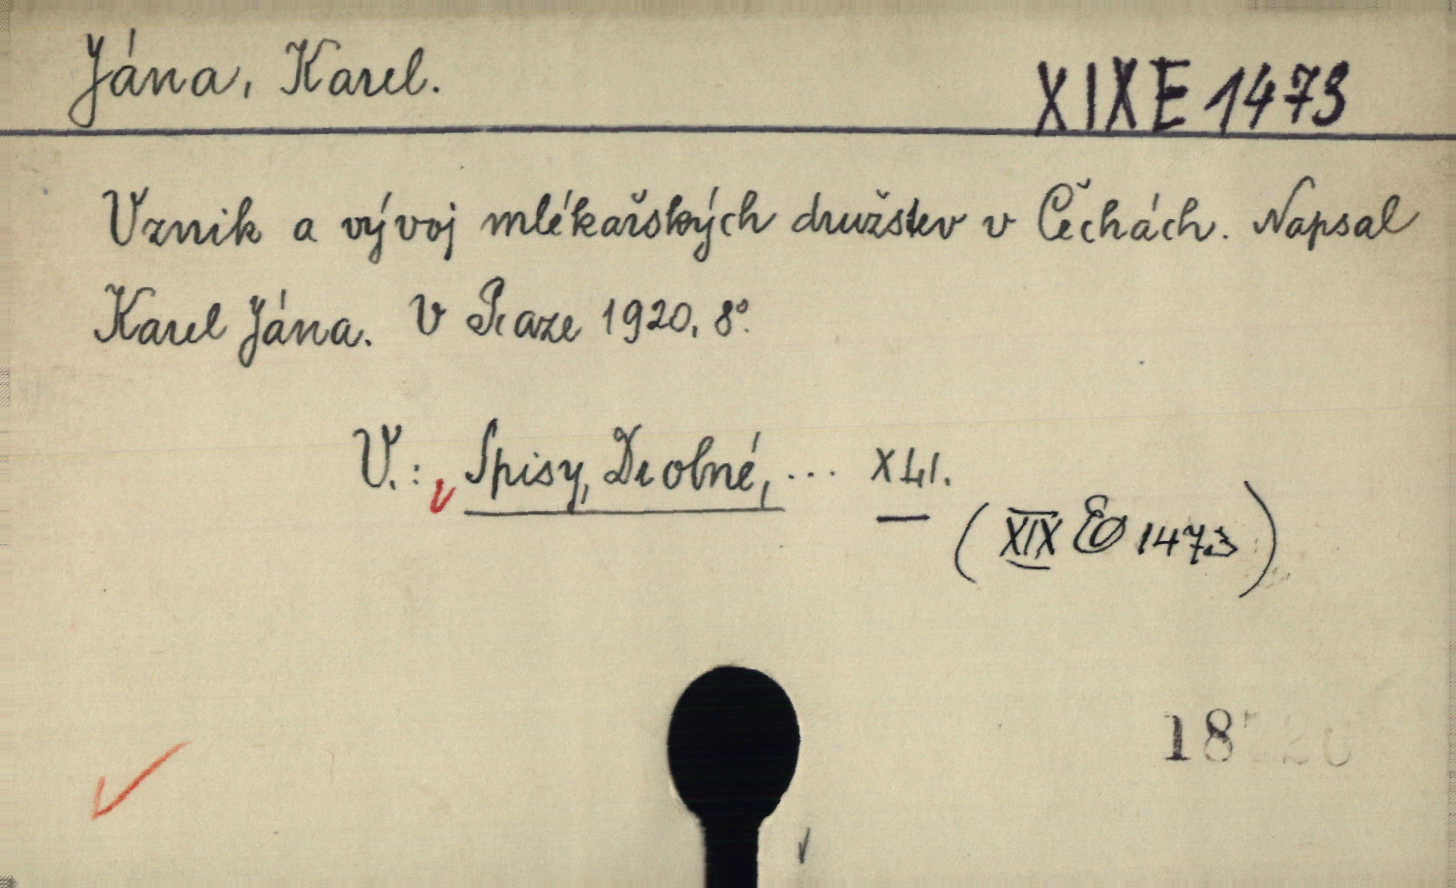 Jána, Karel.
XIX E 1473
Vznik a vývoj mlékařských družstev v Čechách. Napsal
Karel Jána. V Praze 1920, 8°.
V.: Spisy, Drobné, ... XLI.
(XIX E 1473)